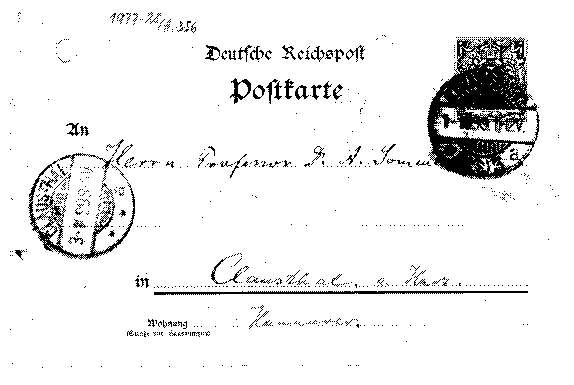 1977-28/A.356
Deutsche Reichspost
Postkarte
An
Herrn Professor Dr. A. Somm
in Clausthal. a Harz.
Wohnung Hannover.
(Straße und Hausnummer)